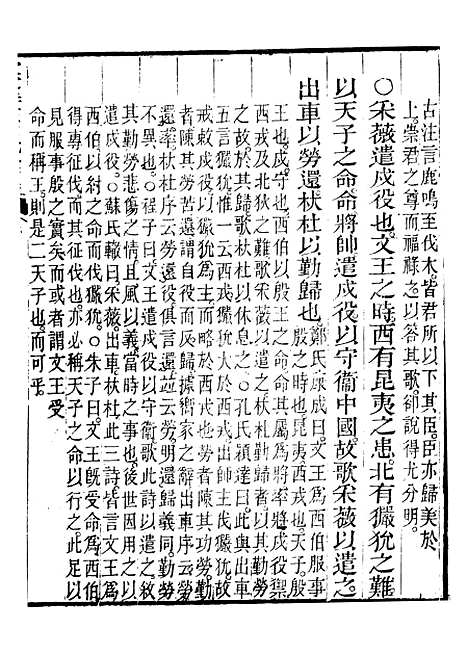 古注言鹿鳴至伐木皆君所以下其臣臣亦歸美於
上崇君之尊而福祿之以答其歌卻說得尤分明
○采薇遣戍役也文王之時西有昆夷之患北有玁狁之難
以天子之命命將帥遣戍役以守衞中國故歌采薇以遣之
出車以勞還杕杜以勤歸也鄭氏康成曰文王爲西伯服事
殷之時也昆夷西戎也天子殷
王也戍守也西伯以殷王之命命其屬爲將率將戍役禦
西戎及北狄之難歌采薇以遣之杕杜勤歸者以其勤勞
之故於其歸歌杕杜以休息之○孔氏穎達曰此與出車
五言玁狁惟一云西戎玁狁大於西戎出師主伐玁狁故
戒敕戍役以玁狁爲主而略於西戎也勞者陳其功勞勤
者陳其勞苦還謂自役而反歸據向家之辭出車序云勞
還率杕杜序云勞還役俱言還並云勞明還歸義同勞勤
不異也○程子曰遣戍役以守衞歌此詩以遣之敘
其勤勞悲傷之情且風以義當時之事也後世因用之以
遣戍役○蘇氏轍曰采薇出車杕杜此三詩皆言文王爲
西伯以紂之命而伐玁狁○朱子曰文王旣受命爲西伯
得專征伐而其征伐也亦必稱天子之命以行之此足以
見服事殷之實矣而或者謂文王受
命而稱王則是二天子也而可乎